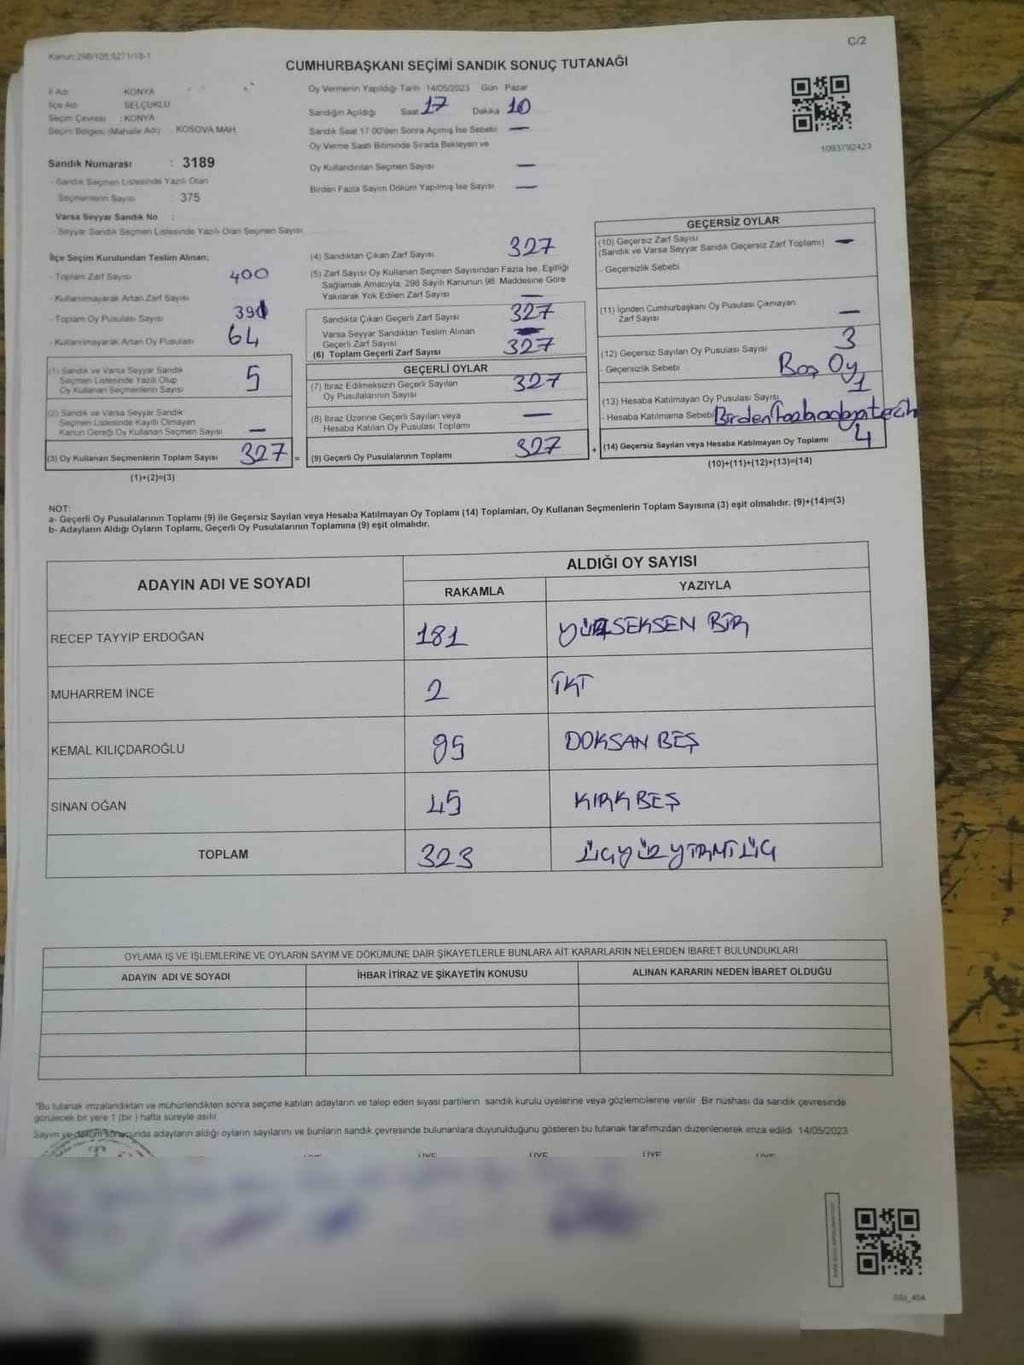 Kanun:298/105,6271/18-1
C/2
CUMHURBAŞKANI SEÇİMİ SANDIK SONUÇ TUTANAĞI
İl Adı : KONYA
İlçe Adı : SELÇUKLU
Seçim Çevresi : KONYA
Seçim Bölgesi (Mahalle Adı) : KOSOVA MAH.
Sandık Numarası : 3189
- Sandık Seçmen Listesinde Yazılı Olan
Seçmenlerin Sayısı : 375
Varsa Seyyar Sandık No :
- Seyyar Sandık Seçmen Listesinde Yazılı Olan Seçmen Sayısı
Oy Vermenin Yapıldığı Tarih 14/05/2023 Gün Pazar
Sandığın Açıldığı Saat 17 Dakika 10
Sandık Saat 17:00'den Sonra Açılmış İse Sebebi —
Oy Verme Saati Bitiminde Sırada Bekleyen ve
Oy Kullandırılan Seçmen Sayısı —
Birden Fazla Sayım Döküm Yapılmış İse Sayısı —
1093792423
İlçe Seçim Kurulundan Teslim Alınan;
- Toplam Zarf Sayısı 400
- Kullanılmayarak Artan Zarf Sayısı
- Toplam Oy Pusulası Sayısı 391
- Kullanılmayarak Artan Oy Pusulası 64
(1) Sandık ve Varsa Seyyar Sandık
Seçmen Listesinde Yazılı Olup
Oy Kullanan Seçmenlerin Sayısı 5
(2) Sandık ve Varsa Seyyar Sandık
Seçmen Listesinde Kayıtlı Olmayan
Kanun Gereği Oy Kullanan Seçmen Sayısı —
(3) Oy Kullanan Seçmenlerin Toplam Sayısı 327 =
(1)+(2)=(3)
(4) Sandıktan Çıkan Zarf Sayısı 327
(5) Zarf Sayısı Oy Kullanan Seçmen Sayısından Fazla İse, Eşitliği
Sağlamak Amacıyla, 298 Sayılı Kanunun 98. Maddesine Göre
Yakılarak Yok Edilen Zarf Sayısı —
Sandıkta Çıkan Geçerli Zarf Sayısı 327
Varsa Seyyar Sandıktan Teslim Alınan
Geçerli Zarf Sayısı —
(6) Toplam Geçerli Zarf Sayısı 327
GEÇERLİ OYLAR
(7) İtiraz Edilmeksizin Geçerli Sayılan
Oy Pusulalarının Sayısı 327
(8) İtiraz Üzerine Geçerli Sayılan veya
Hesaba Katılan Oy Pusulası Toplamı —
(9) Geçerli Oy Pusulalarının Toplamı 327 +
GEÇERSİZ OYLAR
(10) Geçersiz Zarf Sayısı
(Sandık ve Varsa Seyyar Sandık Geçersiz Zarf Toplamı) —
- Geçersizlik Sebebi
(11) İçinden Cumhurbaşkanı Oy Pusulası Çıkmayan
Zarf Sayısı —
(12) Geçersiz Sayılan Oy Pusulası Sayısı 3
- Geçersizlik Sebebi Boş Oy
(13) Hesaba Katılmayan Oy Pusulası Sayısı 1
- Hesaba Katılmama Sebebi Birden fazla adaya tercih
(14) Geçersiz Sayılan veya Hesaba Katılmayan Oy Toplamı 4
(10)+(11)+(12)+(13)=(14)
NOT:
a- Geçerli Oy Pusulalarının Toplamı (9) ile Geçersiz Sayılan veya Hesaba Katılmayan Oy Toplamı (14) Toplamları, Oy Kullanan Seçmenlerin Toplam Sayısına (3) eşit olmalıdır. (9)+(14)=(3)
b- Adayların Aldığı Oyların Toplamı, Geçerli Oy Pusulalarının Toplamına (9) eşit olmalıdır.
ADAYIN ADI VE SOYADI
ALDIĞI OY SAYISI
RAKAMLA YAZIYLA
RECEP TAYYİP ERDOĞAN 181 YÜZSEKSEN BİR
MUHARREM İNCE 2 İKİ
KEMAL KILIÇDAROĞLU 95 DOKSAN BEŞ
SİNAN OĞAN 45 KIRK BEŞ
TOPLAM 323 ÜÇYÜZ YİRMİ ÜÇ
OYLAMA İŞ VE İŞLEMLERİNE VE OYLARIN SAYIM VE DÖKÜMÜNE DAİR ŞİKAYETLERLE BUNLARA AİT KARARLARIN NELERDEN İBARET BULUNDUKLARI
ADAYIN ADI VE SOYADI İHBAR İTİRAZ VE ŞİKAYETİN KONUSU ALINAN KARARIN NEDEN İBARET OLDUĞU
*Bu tutanak imzalandıktan ve mühürlendikten sonra seçime katılan adayların ve talep eden siyasi partilerin sandık kurulu üyelerine veya gözlemcilerine verilir. Bir nüshası da sandık çevresinde
görülecek bir yere 1 (bir) hafta süreyle asılır.
Sayım ve döküm sonucunda adayların aldığı oyların sayılarını ve bunların sandık çevresinde bulunanlara duyurulduğunu gösteren bu tutanak tarafımızdan düzenlenerek imza edildi. 14/05/2023
ÜYE ÜYE ÜYE ÜYE ÜYE